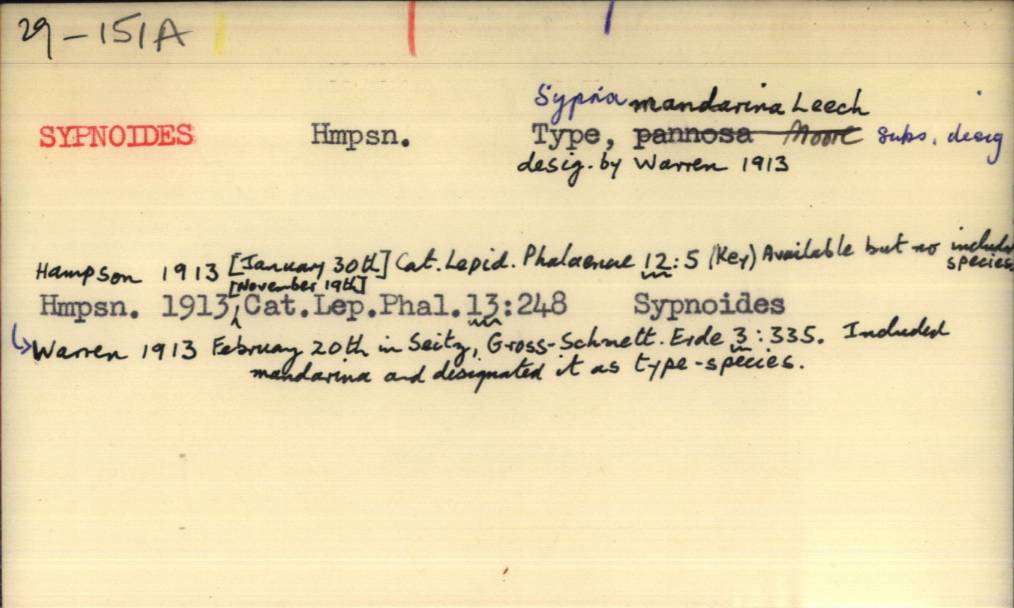 29-151A
Sypna mandarina Leech
SYPNOIDES Hmpsn. Type, pannosa Moore subs. desig
desig. by Warren 1913
Hampson 1913 [January 30th] Cat. Lepid. Phalaenae 12:5 (Key) Available but no included species.
[November 19th]
Hmpsn. 1913, Cat.Lep.Phal.13:248 Sypnoides
Warren 1913 February 20th in Seitz, Gross-Schmett. Erde 3:335. Included
mandarina and designated it as type-species.